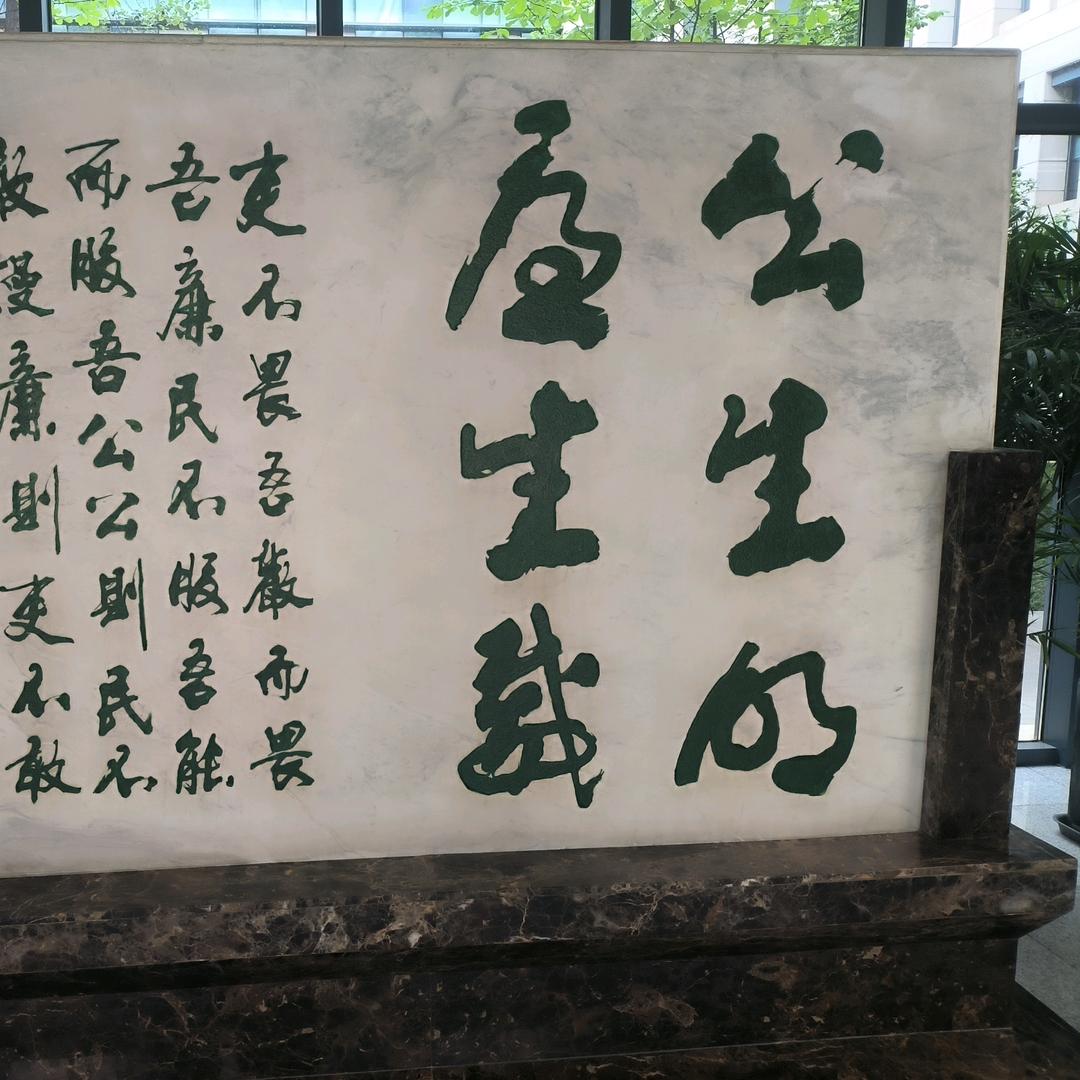 公生明
廉生威
吏不畏吾嚴而畏
吾廉民不服吾能
而服吾公公則民不
敢慢廉則吏不敢